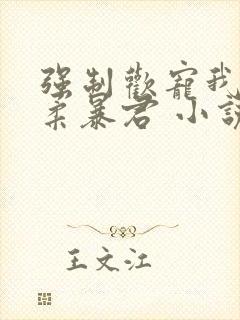 强制歡寵我
柔暴君 小說
王文江